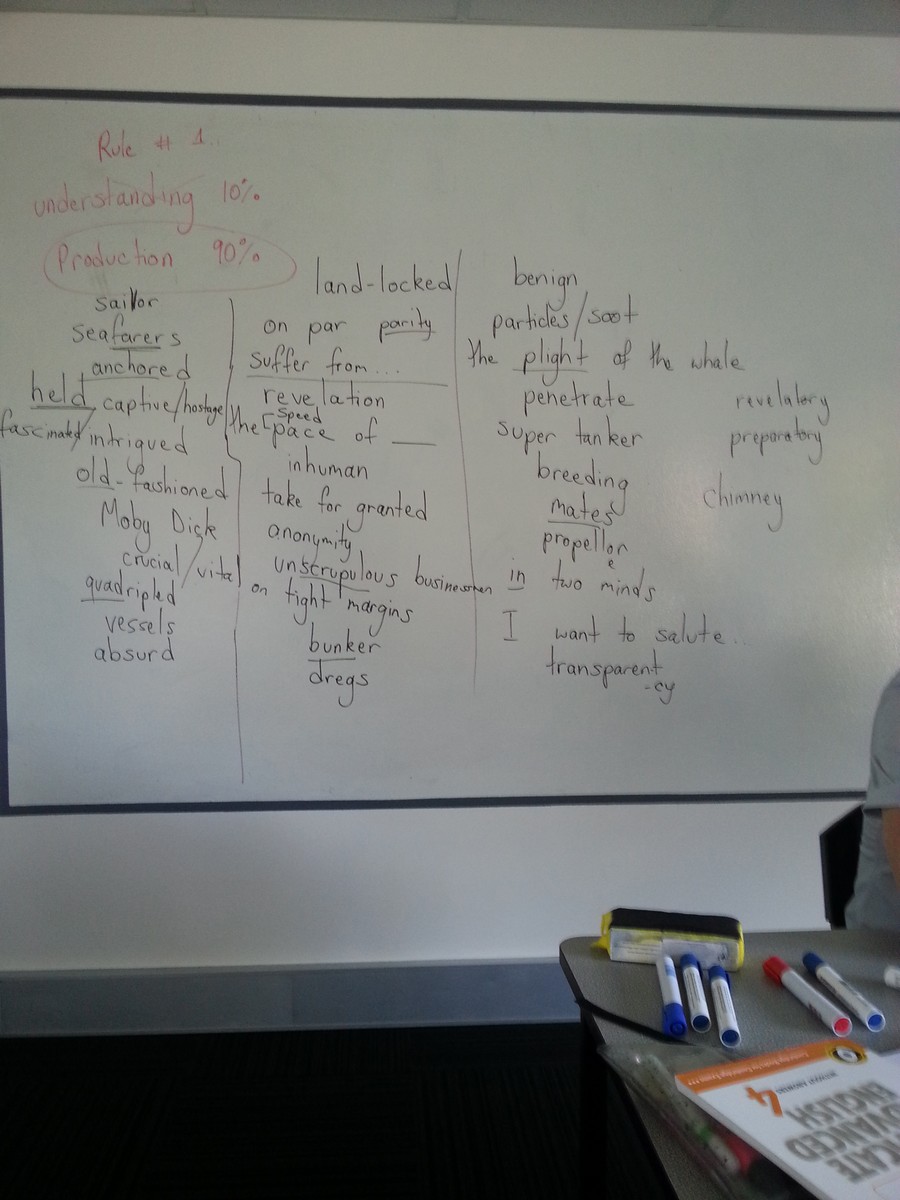 Rule # 1..
understanding 10%
Production 90%
sailor
seafarers
anchored
held captive/hostage
fascinated/intrigued
old-fashioned
Moby Dick
crucial/vital
quadripled
vessels
absurd
land-locked
on par parity
suffer from...
revelation
speed
the [pace of __
inhuman
take for granted
anonymity
unscrupulous businessmen
on tight margins
bunker
dregs
benign
particles/soot
the plight of the whale
penetrate
super tanker
breeding
mates
propellor
e
in two minds
I want to salute...
transparent
-cy
revelatory
preparatory
chimney
4
ADVANCED
ENGLISH